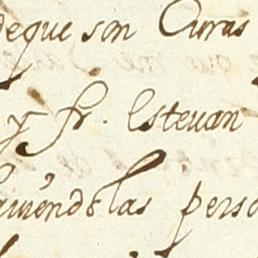 deque son Curas
y fr. Estevan
las perso